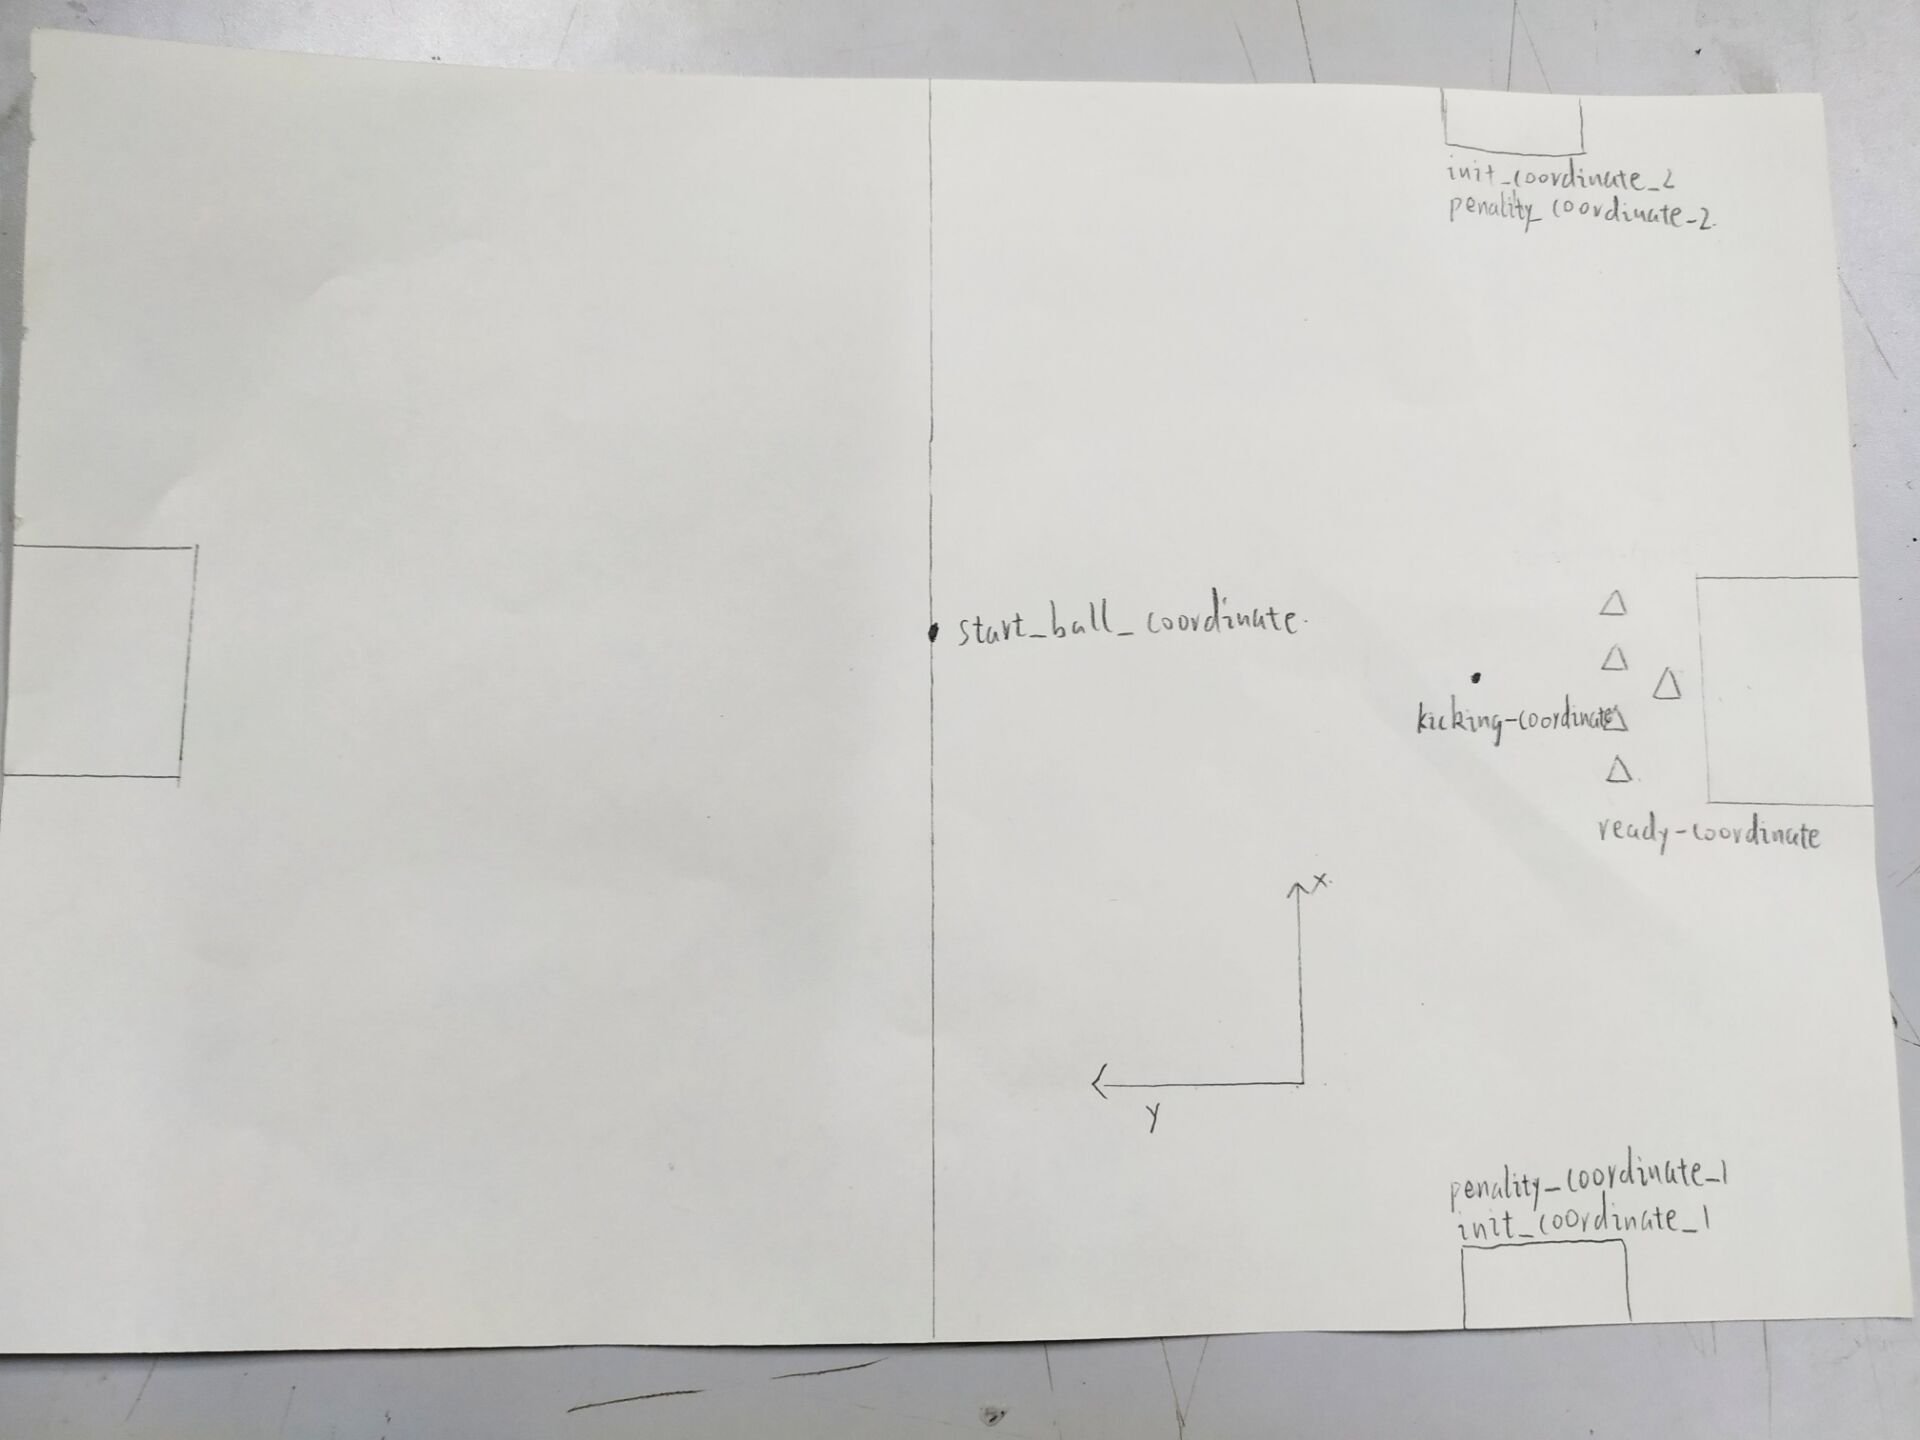 init_coordinate_2
penality_coordinate_2.
start_ball_coordinate.
kicking-coordinate
ready-coordinate
x.
y
penality_coordinate_1
init_coordinate_1